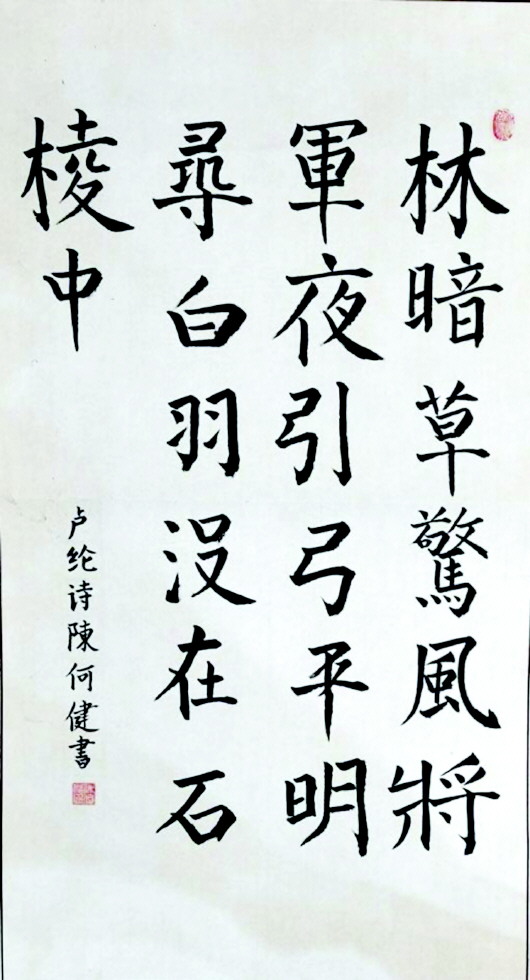 林暗草驚風將
軍夜引弓平明
尋白羽没在石
棱中
卢纶诗陳何健書